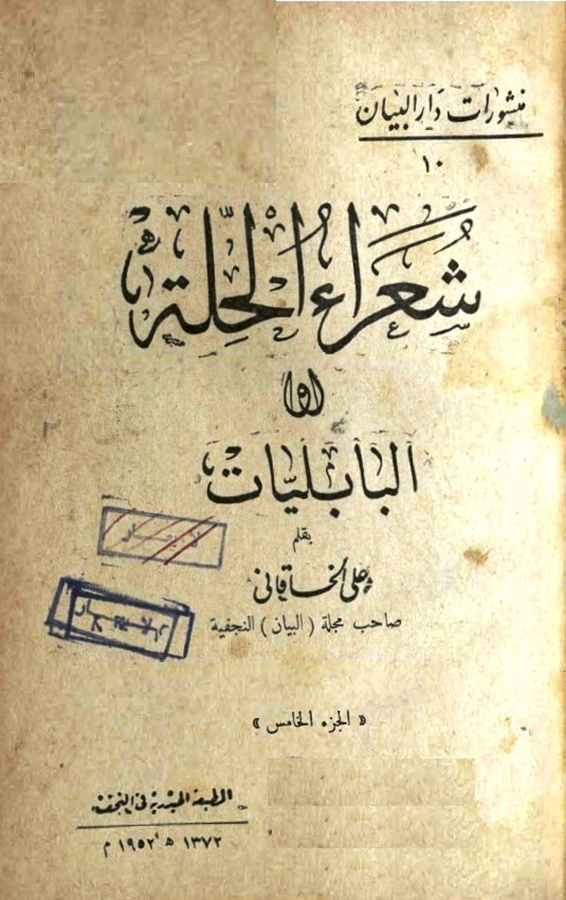 منشورات دار البيان
١٠
شُعَرَاءُ الحِلّة
او
البابليّات
بقلم
علي الخاقاني
صاحب مجلة ( البيان ) النجفية
« الجزء الخامس »
المطبعة الحيدرية في النجف
١٣٧٢ ه ١٩٥٢ م